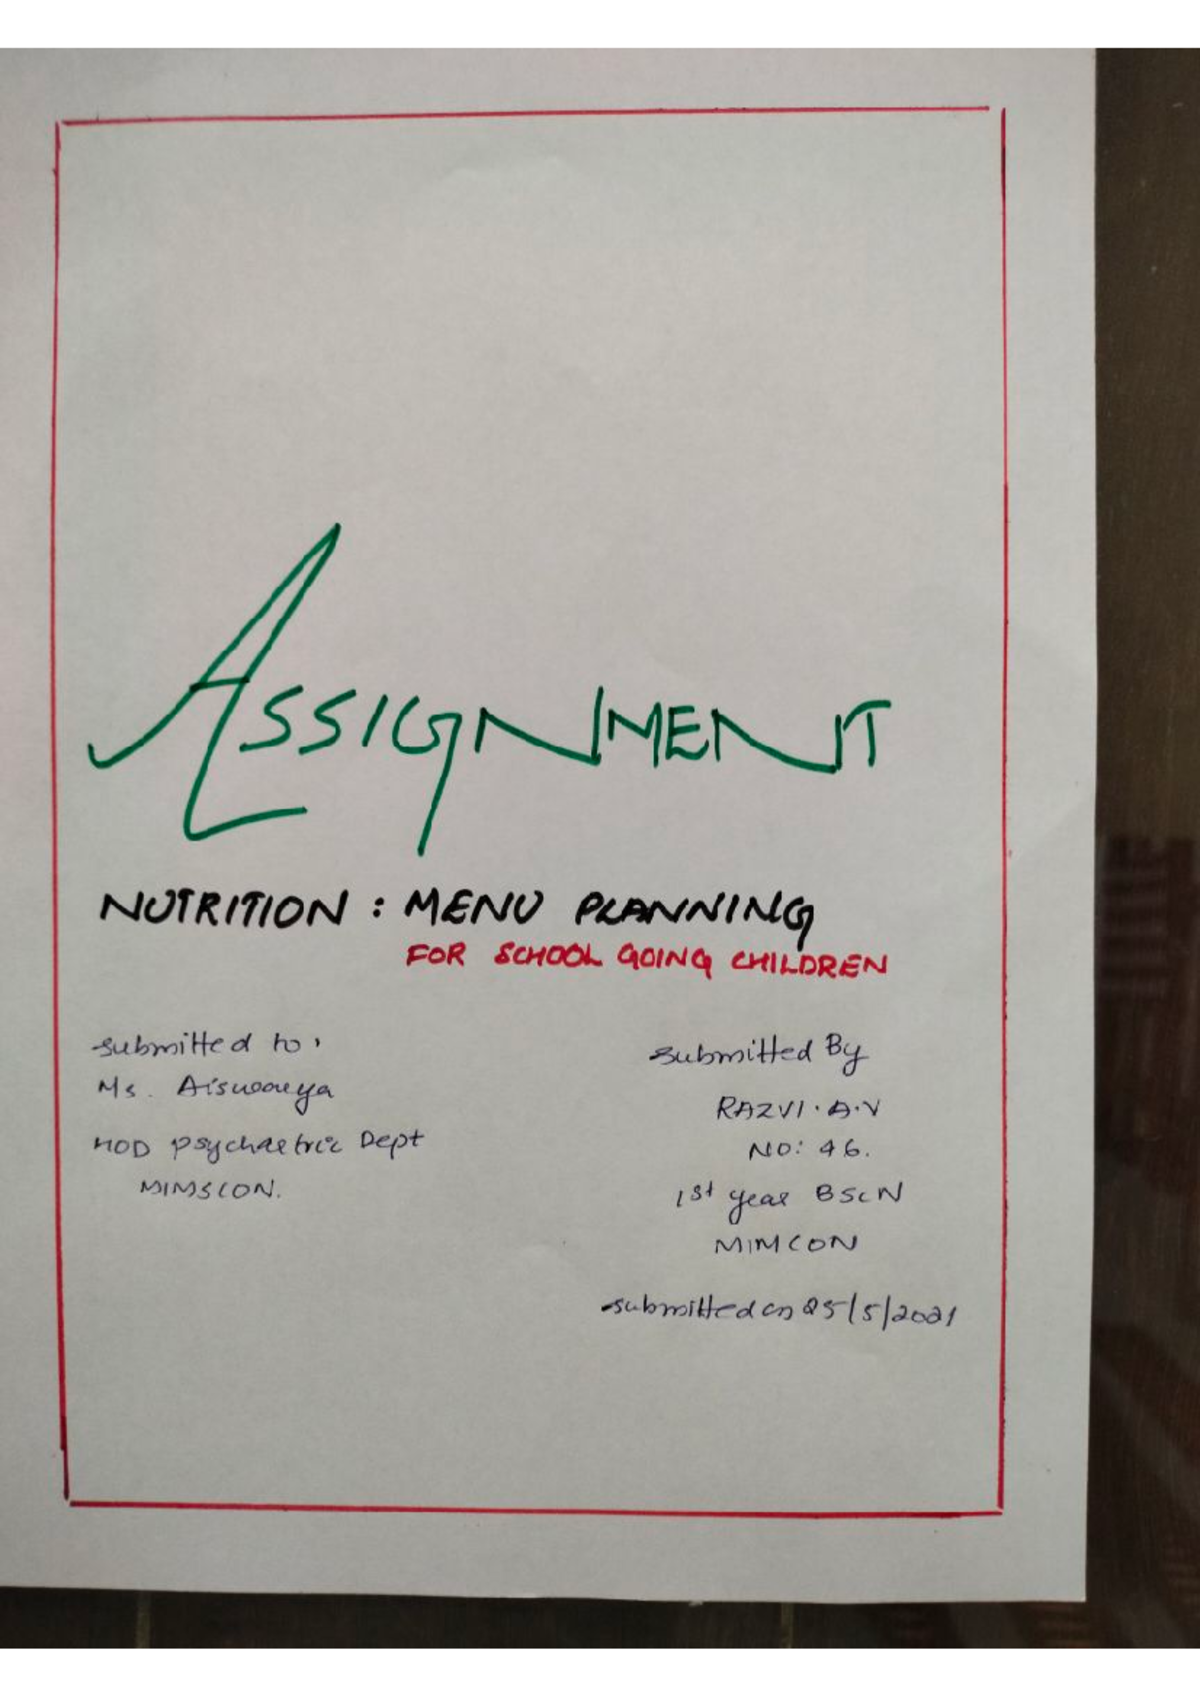 ASSIGNMENT
NUTRITION : MENU PLANNING
FOR SCHOOL GOING CHILDREN
submitted to,
Ms. Aiswarya
HOD psychaetric Dept
MIMSCON.
submitted By
RAZVI. A.V
NO: 46.
1st year BScN
MIMCON
submitted on 25/5/2021